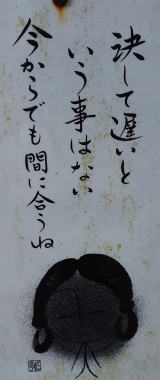 決して遅いと
いう事はない
今からでも間に合うね